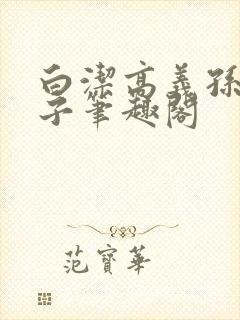 白潔高義孫
子筆趣閣
范寶華